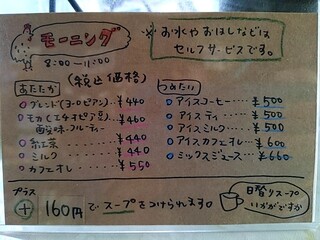 モーニング
8:00〜11:00
※お水やおはしなどは
セルフサービスです。
(税込価格)
あたたか
ブレンド(ヨーロピアン).¥440
モカ(エチオピア).¥460
酸味・フルーティー
紅茶 ¥440
ミルク ¥440
カフェオレ ¥550
つめたい
アイスコーヒー ¥500
アイスティ ¥500
アイスミルク ¥500
アイスカフェオレ ¥600
ミックスジュース ¥660
プラス
+ 160円でスープをつけられます。
日替りスープ
いかがですか